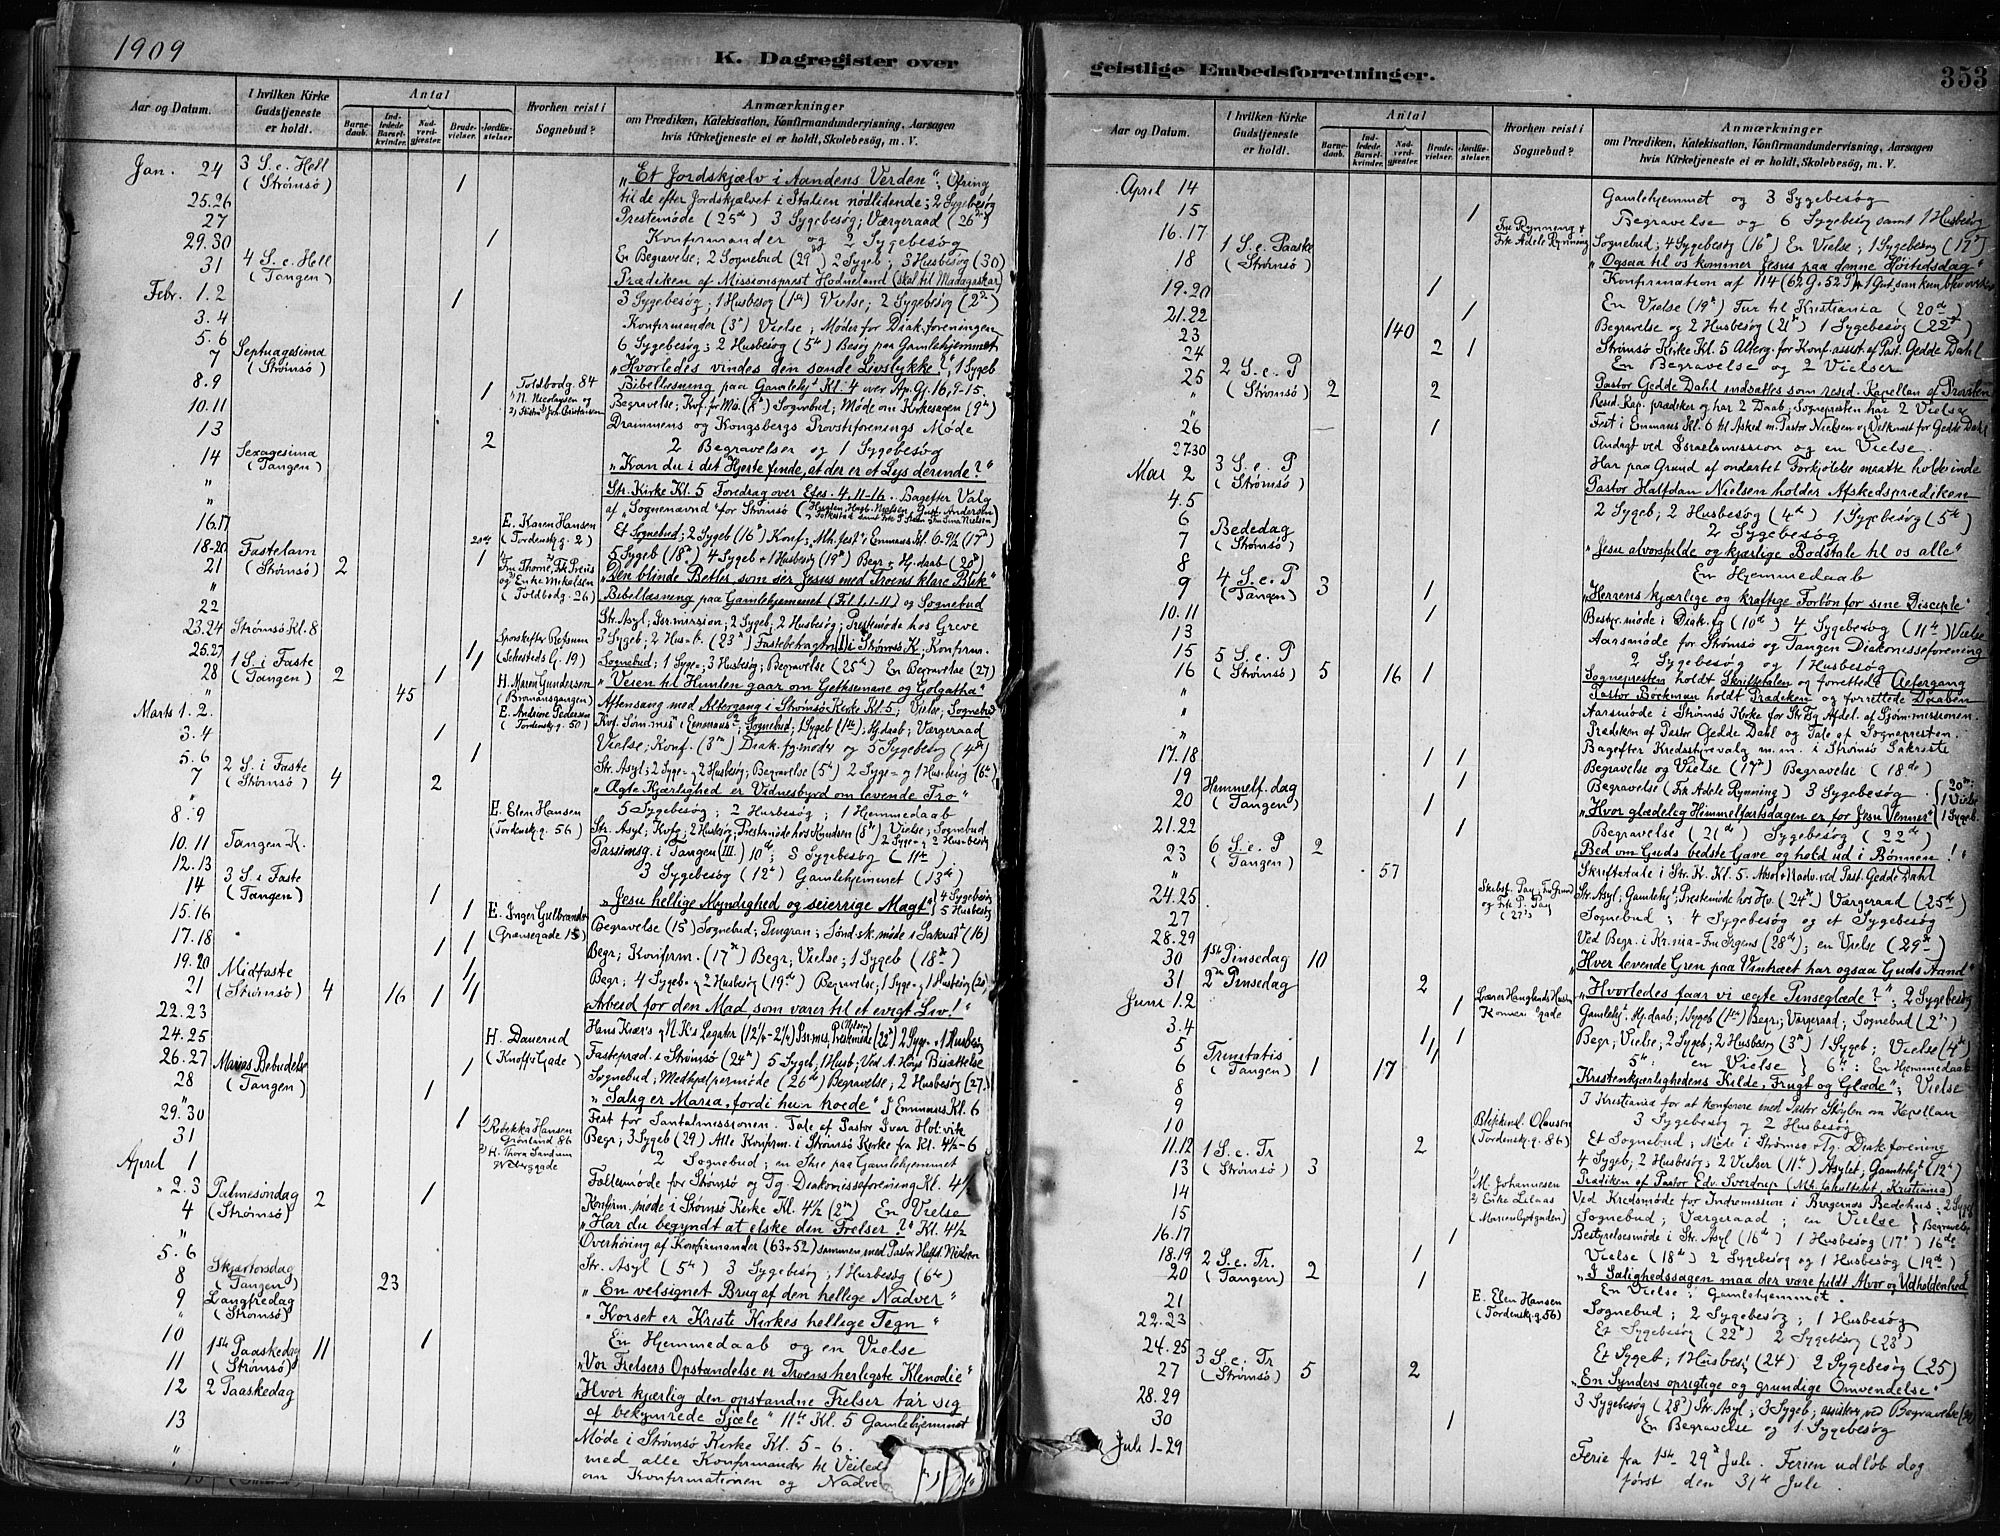 1909
K. Dagregister over
Aar og Datum.
I hvilken Kirke Gudstjeneste er holdt.
Antal
Barnedaab.
Indledede Barselkvinder.
Nadverdgjæster.
Brudevielser.
Jordfæstelser
Hvorhen reist i Sognebud?
Anmærkninger
om Prædiken, Katekisation, Konfirmandundervisning, Aarsagen
hvis Kirketjeneste ei er holdt, Skolebesøg, m. V.
Jan. 24 3 S. e. Hell (Strømsø) 1 "Et Jordskjælv i Aandens Verden", Ofring
25.26 til de efter Jordskjælvet i Italien nødlidende; 2 Sygebesøg
27 Prestemøde (25de) 3 Sygebesøg; Værgeraad (26de)
29.30 1 Konfirmander og 2 Sygebesøg
31 4 S. e. Hell (Tangen) En Begravelse; 2 Sognebud (29de) 2 Sygeb; 3 Husbesøg (30)
Prædiken af Missionsprest Hodneland (skal til Madagaskar)
Febr. 1.2 1 3 Sygebesøg; 1 Husbesøg (1ste) Vielse; 2 Sygebesøg (2den)
3.4 Konfirmander (3die) Vielse; Møder for Diak.foreningen
5.6 6 Sygebesøg; 2 Husbesøg (5te) Besøg paa Gamlehjemmet
7 Septuagesima (Strømsø) "Hvorledes vindes den sande Livslykke?", 1 Sygeb
8.9 1 Toldbodg. 84 Bibellæsning paa Gamlehjt Kl. 4 over Ap. Gj. 16, 9-15.
10.11 N. Nicolaysen og Begravelse; Kof. for Mø. (8de) Sognebud; Møde om Kirkesagen (9de)
13 2 Drammens og Kongsbergs Provstiforenings Møde
2 Begravelser og 1 Sygebesøg
14 Sexagesima (Tangen) "Kan du i dit Hjerte finde, at der er et Lys derinde?"
" Str. Kirke Kl. 5 Foredrag over Efes. 4, 11-16. Bagefter Valg
" af "Sognenævnd" for Strømsø
16.17 E. Karen Hansen (Tordenskj.g. 2) Et Sognebud; 2 Sygeb (16de) Konf; Emmaus Kl. 6-9½ (17de)
18-20 1 5 Sygeb (18de) 4 Sygeb + 1 Husbesøg (19de) Begr + Hj.daab (20de)
21 Fastelavn (Strømsø) 2 og Enke Mikelsen (Toldbodg. 26) "Den blinde Betler som ser Jesus med Troens klare Blik"
" Bibellæsning paa Gamlehjemmet (Fil 1, 1-11) og Sognebud
22 Str. Asyl; Isr.mission; 2 Sygeb; 2 Husbesøg; Prestemøde hos Greve
23.24 Strømsø Kl. 8 3 Sygeb; 2 Hus-b. (23de) Fastebetragtn (I) i Strømsø K; Konfirm.
25.27 Sporskifter Refsum (Schesteds G. 19) Sognebud; 1 Syge- 3 Husbesøg; Begravelse (25de) En Begravelse (27)
28 1 S. i Faste (Tangen) 2 1 1 H. Maren Gundersen "Veien til Himlen gaar om Getksemane og Golgatha"
" 45 Aftensang med Altergang i Strømsø Kirke Kl. 5; Vielse; Sognebud
Marts 1.2. E. Andrine Pedersen (Tordenskj.g. 50)
3.4 1 Vielse; Konf. (3die) Diak.fg.møde og 5 Sygebesøg (4de)
5.6 1 Str. Asyl; 2 Syge- og 2 Husbesøg; Begravelse (5te) 2 Syge- og 1 Husbesøg (6te)
7 2 S. i Faste (Strømsø) 4 2 "Ægte Kjærlighed er Vidnesbyrd om levende Tro"
" 5 Sygebesøg; 2 Husbesøg; 1 Hjemmedaab
8.9 E. Elen Hansen (Tordenskj.g. 56) Str. Asyl; Kofg; 2 Husbesøg; Prestemøde hos Knudsen (8de) Vielse; Sognebud
10.11 Tangen K. Passionsg. i Tangen (III) 10de; 8 Sygebesøg (11te)
12.13 3 Sygebesøg (12te) Gamlehjemmet (13de)
14 3 S. i Faste (Tangen) 1 "Jesu hellige Myndighed og seierrige Magt" 4 Sygebesøg 5 Husbesøg
15.16 1 E. Inger Gulbrands (Grønsegade 15) Begravelse (15de) Sognebud; Sønd.sk.møde i Sakristi (16)
17.18 1 1 Begr; Konfirm. (17de) Begr; Vielse; 1 Sygeb (18de)
19.20 Begr; 4 Sygeb- og 2 Husbesøg (19de) Begravelse; 1 Syge- og 1 Husbesøg (20)
21 Midfaste (Strømsø) 4 16 1 "Arbeid for den Mad, som varer til et evigt Liv!"
22.23
24.25 H. Dauerud (Knoffs Gade) Fastepræd. i Strømsø (24de) 5 Sygeb; 1 Husb; Ved A. Høys Bisættelse
26.27 1 Sognebud; Medhjælpermøde (26de) Begravelse; 2 Husbesøg (27)
28 Marias Bebudelse (Tangen) 1 "Salig er Maria, fordi hun troede" I Emmaus Kl. 6
29.30 1 Rebekka Hansen Grønland 86 Fest for Santalmissionen. Tale af Pastor Ivar Hot vik
31 Begr; 3 Sygeb (29) Alle Konfirm. i Strømsø Kirke fra Kl. 4½-6
April 1 2 Sognebud; en Skie paa Gamlehjemmet
" 2.3 1 Fællesmøde for Strømsø og Tg. Diakonisseforening Kl. 4½
4 Palmesøndag (Strømsø) 2 Konfirm.møde i Strømsø Kirke Kl. 4½ (2den) En Vielse
"Har du begyndt at elske den Frelser?" Kl. 4½
5.6 Overhøring af Konfirmander (63+52) sammen med Pastor Halfd. Nielsen
Str. Asyl (5te) 3 Sygebesøg; 1 Husbesøg (6te)
8 Skjærtorsdag (Tangen) 23 "En velsignet Brug af den hellige Nadver"
9 Langfredag (Strømsø) "Korset er Kristi Kirkes hellige Tegn"
10 1 En Hjemmedaab og en Vielse
11 1ste Paaskedag (Strømsø) 11 "Vor Frelsers Opstandelse er Troens herligste Klenodie"
12 2 Paaskedag "Hvor kjærlig den opstandne Frelser tar sig
af bekymrede Sjæle" 11te Kl. 5 Gamlehjemmet
13 Møde i Strømsø Kirke Kl. 5-6.
" med alle Konfirmander til Veiled
om Konfirmationen og Nadve
geistlige Embedsforretninger.
353
Aar og Datum.
I hvilken Kirke Gudstjeneste er holdt.
Antal
Barnedaab.
Indledede Barselkvinder.
Nadverdgjæster.
Brudevielser.
Jordfæstelser.
Hvorhen reist i Sognebud?
Anmærkninger
om Prædiken, Katekisation, Konfirmandundervisning, Aarsagen
hvis Kirketjeneste ei er holdt, Skolebesøg, m. V.
April 14 Gamlehjemmet og 3 Sygebesøg
15 1 Begravelse og 6 Sygebesøg samt 1 Husbesøg
16.17 Fru Rynning + Frk Adele Rynning Sognebud; 4 Sygebesøg (16de) En Vielse; 1 Sygebesøg (17de)
18 1 S. e. Paaske (Strømsø) "Ogsaa til os kommer Jesus paa denne Høitidsdag"
Konfirmation af 114 (62 G. 52 P)
19.20 1 En Vielse (19de) Tur til Kristiania (20de)
21.22 1 Begravelse og 2 Husbesøg (21de) 1 Sygebesøg (22de)
23 140 Strømsø Kirke Kl. 5 Alterg. for Konf. assist. af Past. Gedde Dahl
24 2 1 En Begravelse og 2 Vielser
25 2 S. e. P (Strømsø) 2 2 Pastor Gedde Dahl indsattes som resid. Kapellan af Provsten
" Resid. Kap. prædiker og har 2 Daab; Sognepresten har 2 Vielse
26 — 1 Fest i Emmaus Kl. 6 til Afsked m. Pastor Nielsen og Velkomst for Gedde Dahl
27.30 Andagt ved Israelsmission og en Vielse.
Mai 2 3 S. e. P (Strømsø) Har paa Grund af ondartet Forkjølelse maatte holde inde
Pastor Halfdan Nielsen holder Afskedsprædiken
4.5 2 Sygeb; 2 Husbesøg (4de) 1 Sygebesøg (5te)
6 2 Sygebesøg
7 Bededag (Strømsø) "Jesu alvorsfulde og kjærlige Bodstale til os alle"
8 En Hjemmedaab
9 4 S. e. P (Tangen) 3 1 "Herrens kjærlige og kraftige Forbøn for sine Disciple"
10.11 1 Bestyr.møde i Diak.fg (10de) 4 Sygebesøg (11te) Vielse
13 Aarsmøde for Strømsø og Tangen Diakonisseforening
15 2 Sygebesøg og 1 Husbesøg
16 5 S. e. P (Strømsø) 5 16 1 Sognepresten holdt Skriftetalen og forrettede Altergang
" Pastor Bockman holdt Prædiken og forrettede Daaben
" Aarsmøde i Strømsø Kirke for Str Tg Afdel. af Sjøm.missionen.
" Prædiken af Pastor Gedde Dahl og Tale af Sognepresten.
Bagefter Kredsstyrevalg m. m. i Strømsø Sakristi
17.18 1 1 Begravelse og Vielse (17de) Begravelse (18de)
19 1 Begravelse (Frk Adele Rynning) 3 Sygebesøg 20de: 1 Vielse 1 Sygeb.
20 Himmelf.dag (Tangen) 1 "Hvor glædelig Himmelfartsdagen er for Jesu Venner"
21.22 1 Begravelse (21de) Sygebesøg (22de)
23 6 S. e. P (Tangen) 2 "Bed om Guds bedste Gave og hold ud i Bønnen!"
" 57 Skriftetale i Str. K. Kl. 5. Absol + Nadv. ved Past. Gedde Dahl
24.25 Str. Asyl; Gamlehjt; Prestemøde hos Hv. (24de) Værgeraad (25de)
27 Sognebud; 4 Sygebesøg og et Sygebesøg
28.29 Ved Begr. i Kr.nia (28de); en Vielse (29de)
30 1ste Pinsedag 10 "Hver levende Gren paa Vintræet har ogsaa Guds Aand"
31 2den Pinsedag 2 "Hvorledes faar vi ægte Pinseglæde?"; 2 Sygebesøg
Juni 1.2 1 Gamlehjt; Hj.daab; 1 Sygeb (1ste) Begr; Værgeraad; Sognebud (2den)
3.4 Begr; Vielse; 2 Sygeb; 2 Husbesøg (3die) 1 Sygeb; Vielse (4de)
5 5te en Vielse 6te: En Hjemmedaab
6 Trinitatis (Tangen) 1 17 "Kristenkjærlighedens Kilde, Frugt og Glæde"; Vielse
8 I Kristiania for at konferere med Pastor om Kapellan
9 3 Sygebesøg og 2 Husbesøg
10 Blikkensl. Olausen (Tordenskj.g. 86) Et Sognebud; Møde i Strømsø + Tg. Diak.forening
11.12 2 4 Sygeb; 2 Husbesøg; 2 Vielser (11te) Asylet; Gamlehjt (12te)
13 1 S. e. Tr (Strømsø) 3 M. Johannesen Prædiken af Pastor Edv. Sverdrup (Mh. fakultetet, Kristiania)
14 2 Enke Lilaas Ved Kredsmøde for Indremission i Bragernes Bedehus; 2 Sygeb
15 Sognebud; Værgeraad; en Vielse
16.17 1 Bestyrelsesmøde i Str. Asyl (16de) 1 Husbesøg (17de)
18.19 1 Vielse (18de) 2 Sygebesøg og 1 Husbesøg (19de)
20 2 S. e. Tr. (Tangen) 2 1 "I Salighedssagen maa der være fuldt Alvor og Udholdenhed"
En Vielse; Gamlehjemmet.
21 E. Elen Hansen (Tordenskj.g. 56) Sognebud; 2 Sygebesøg; 1 Husbesøg
22.23 Et Sygebesøg (22de) 2 Sygebesøg (23de)
24.25 Et Sygeb; 1 Husbesøg (24) 2 Sygebesøg (25)
27 3 S. e. Tr (Strømsø) 5 2 "En Synders oprigtige og grundige Omvendelse"
28.29 3 Sygebesøg (28de) Str. Asyl; 3 Sygeb; assisterer ved Begravelse
30 1 En Begravelse og 1 Sygebesøg
Juli 1-29 Ferie fra 1ste-29de Juli. Ferien udløb dog
først den 31te Juli.